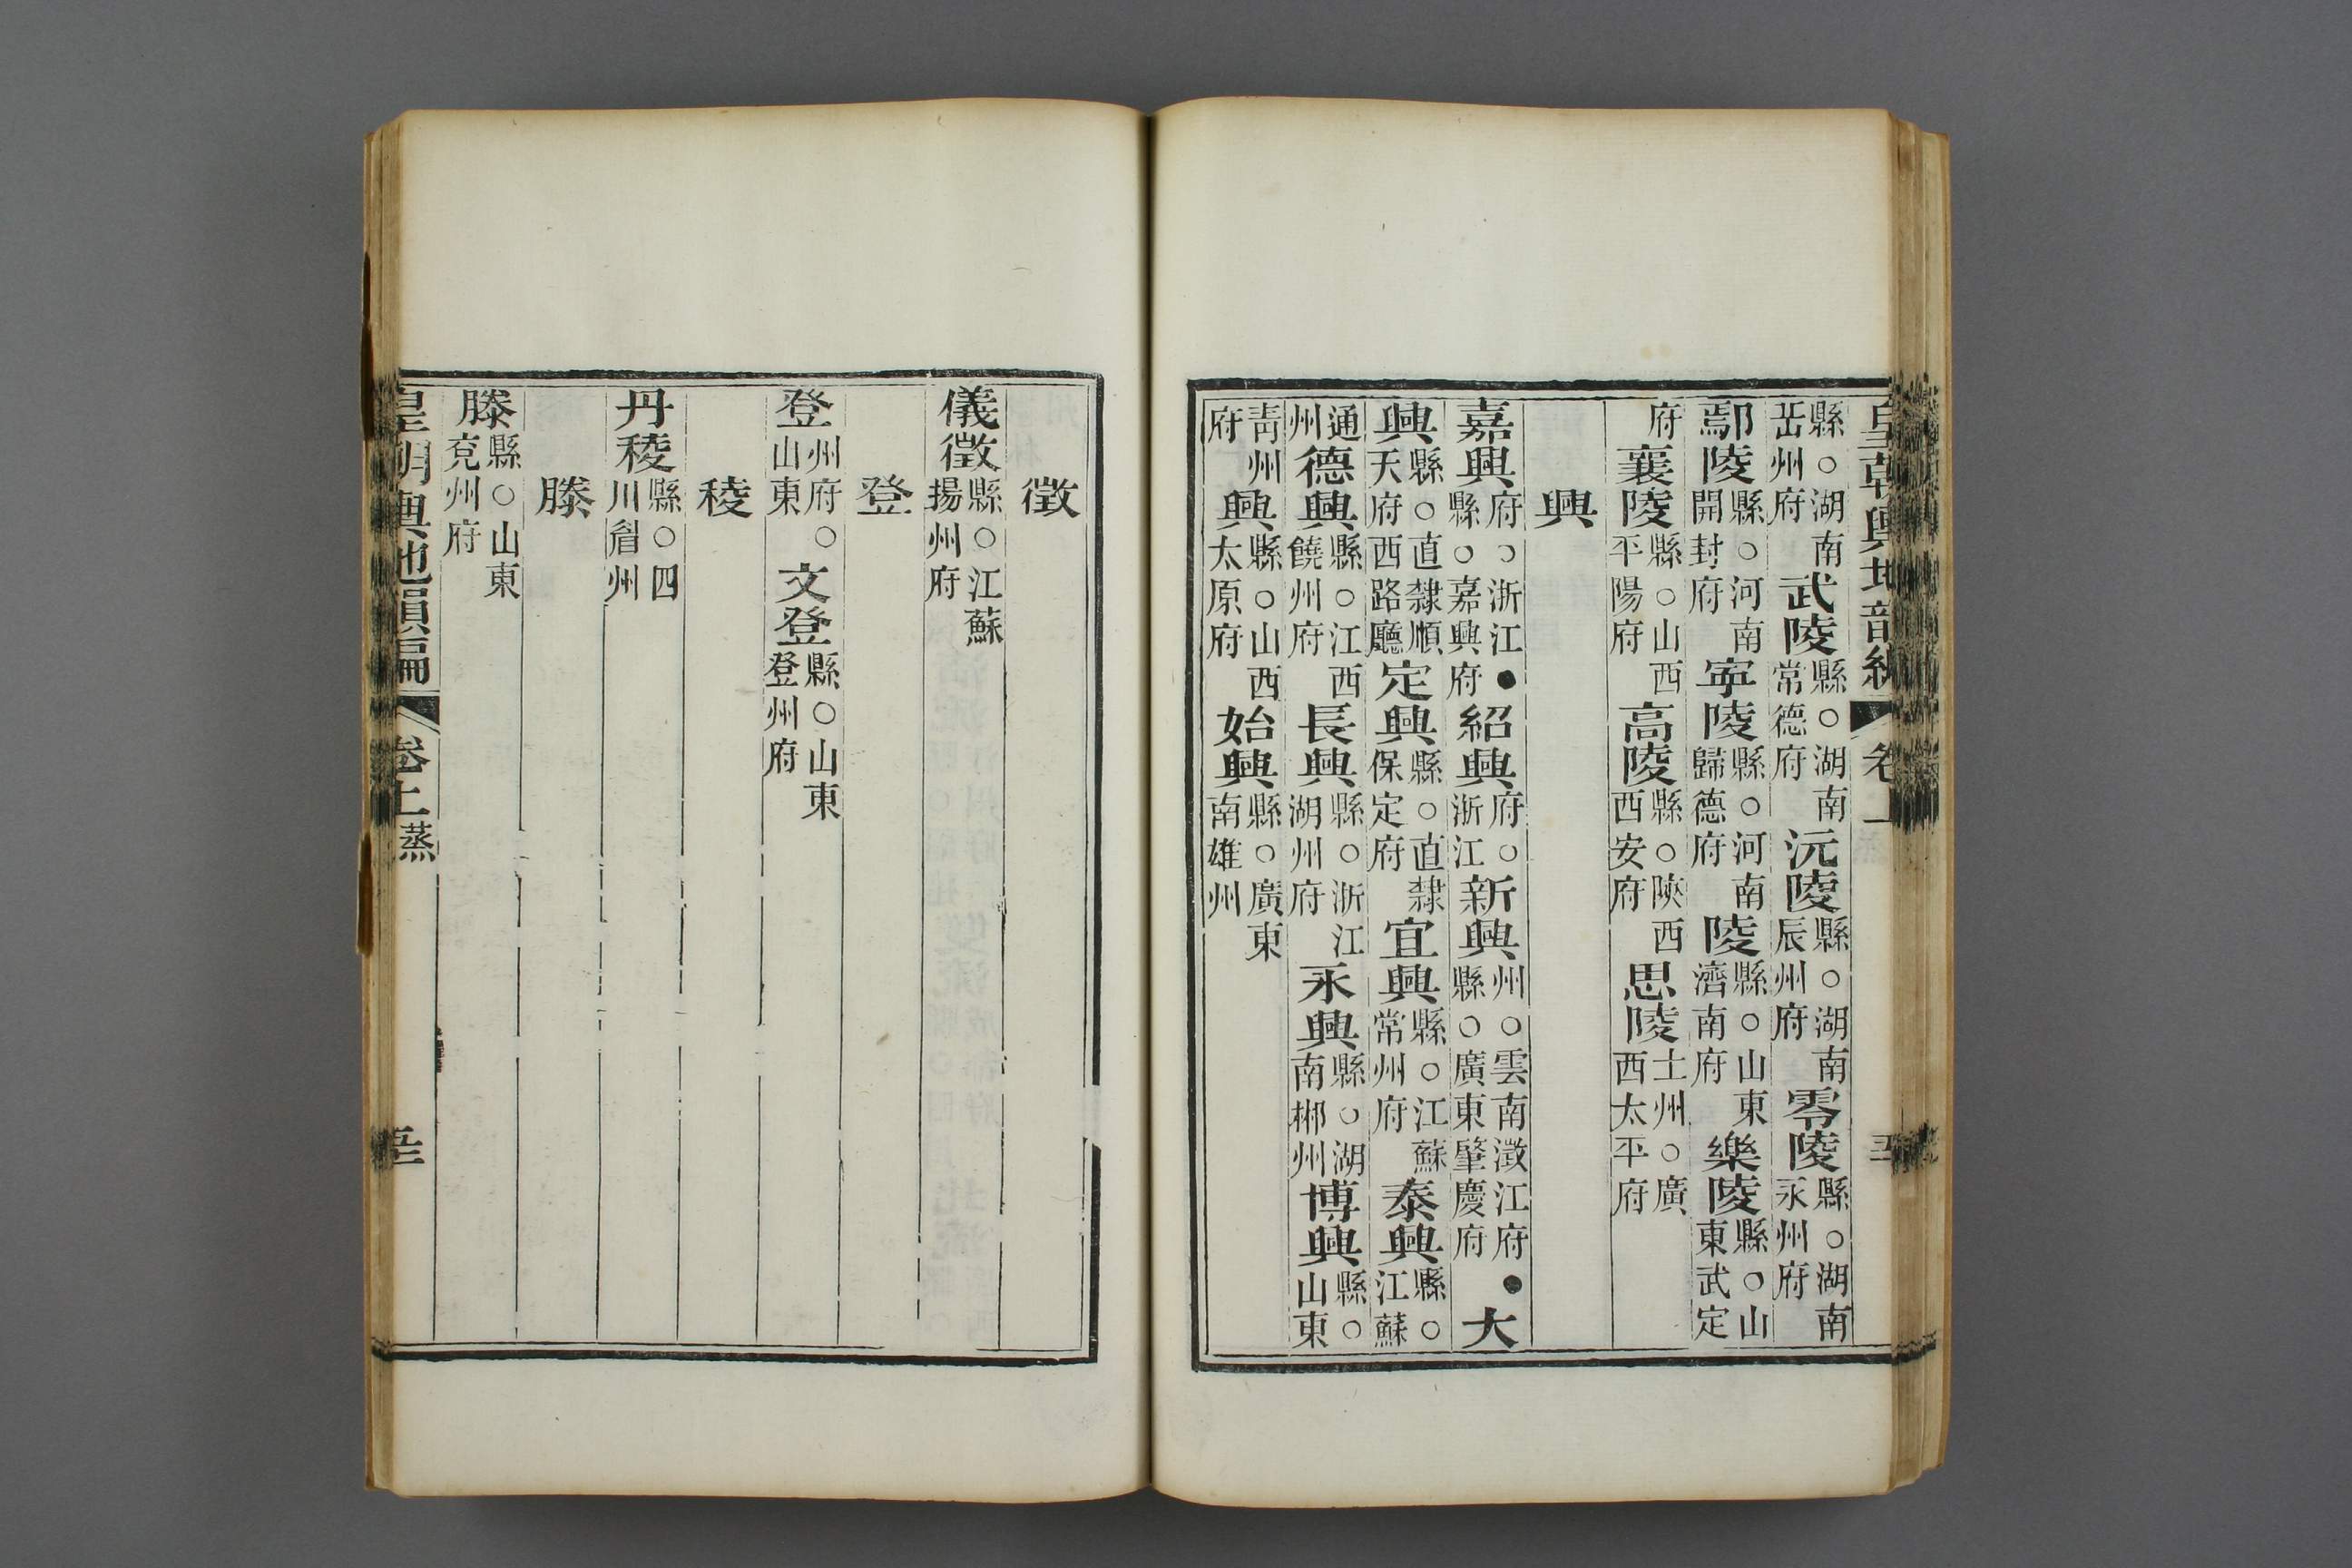 皇朝輿地韵編 卷上
縣○湖南岳州府武陵縣○湖南常德府沅陵縣○湖南辰州府零陵縣○湖南永州府
鄢陵縣○河南開封府寕陵縣○河南歸德府陵縣○山東濟南府樂陵縣○山東武定
府襄陵縣○山西平陽府高陵縣○陝西西安府思陵土州○廣西太平府
興
嘉興府○浙江●縣○嘉興府紹興府○浙江新興州○雲南澂江府●縣○廣東肇慶府大
興縣○直隸順天府西路廳定興縣○直隸保定府宜興縣○江蘇常州府泰興縣○江蘇
通州德興縣○江西饒州府長興縣○浙江湖州府永興縣○湖南郴州博興縣○山東
靑州府興縣○山西太原府始興縣○廣東南雄州
徵
儀徵縣○江蘇揚州府
登
登州府○山東文登縣○山東登州府
稜
丹稜縣○四川眉州
滕
滕縣○山東兗州府
皇朝輿地韻編 卷上 蒸